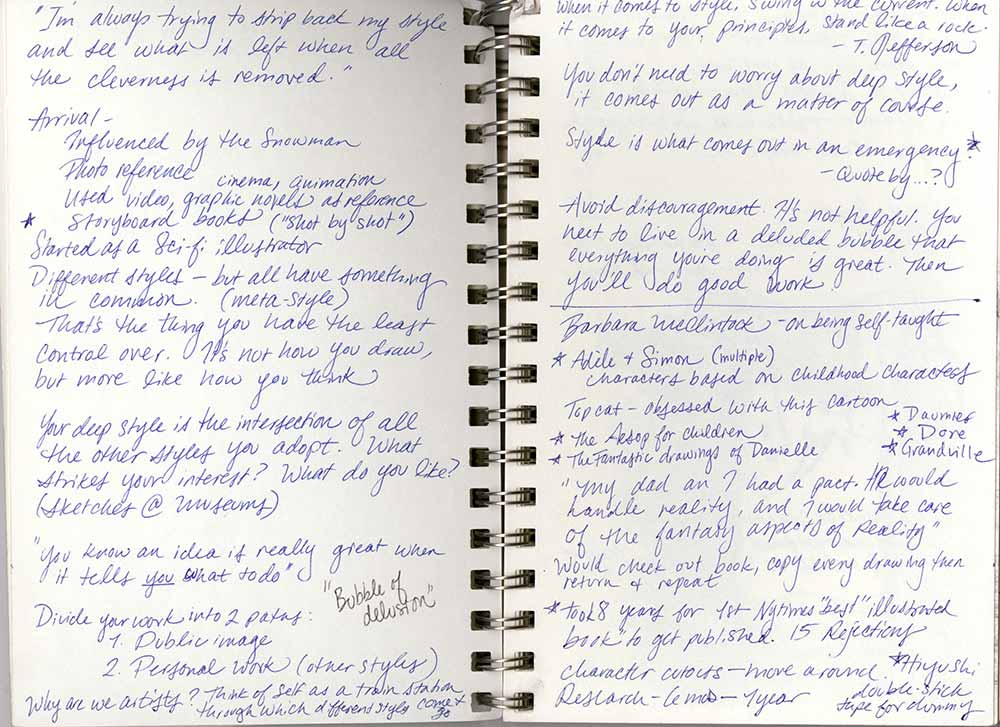 "I'm always trying to strip back my style
and see what is left when all
the cleverness is removed."
Arrival -
Influenced by the Snowman
Photo reference
cinema, animation
Used video, graphic novels as reference
* Storyboard books ("Shot by shot")
Started as a Sci-fi illustrator
Different styles - but all have something
in common. (meta-style)
That's the thing you have the least
control over. It's not how you draw,
but more like how you think
Your deep style is the intersection of all
the other styles you adopt. What
strikes your interest? What do you like?
(Sketches @ Museums)
"You know an idea is really great when
it tells you what to do"
"Bubble of
delusion"
Divide your work into 2 paths:
1. Public image
2. Personal Work (other styles)
Why are we artists? Think of self as a train station
through which different styles come &
go
when it comes to style, swing w the current. When
it comes to your principles, stand like a rock.
- T. Jefferson
You don't need to worry about deep style,
it comes out as a matter of course.
Style is what comes out in an emergency. *
- Quote by...?
Avoid discouragement. It's not helpful. You
need to live in a deluded bubble that
everything you're doing is great. Then
you'll do good work
Barbara McClintock - on being self-taught
* Adele & Simon (multiple)
characters based on childhood characters
Top cat - obsessed with this cartoon
* The Aesop for children
* The Fantastic drawings of Danielle
* Daumier
* Dore
* Grandville
"My dad an I had a pact. HR would
handle reality, and I would take care
of the fantasy aspects of Reality"
Would check out book, copy every drawing then
return & repeat
* took 8 years for 1st Nytimes "best" illustrated
book" to get published. 15 Rejections
character cutouts - move around.
Research - 1year
double-stick
tape for dummy